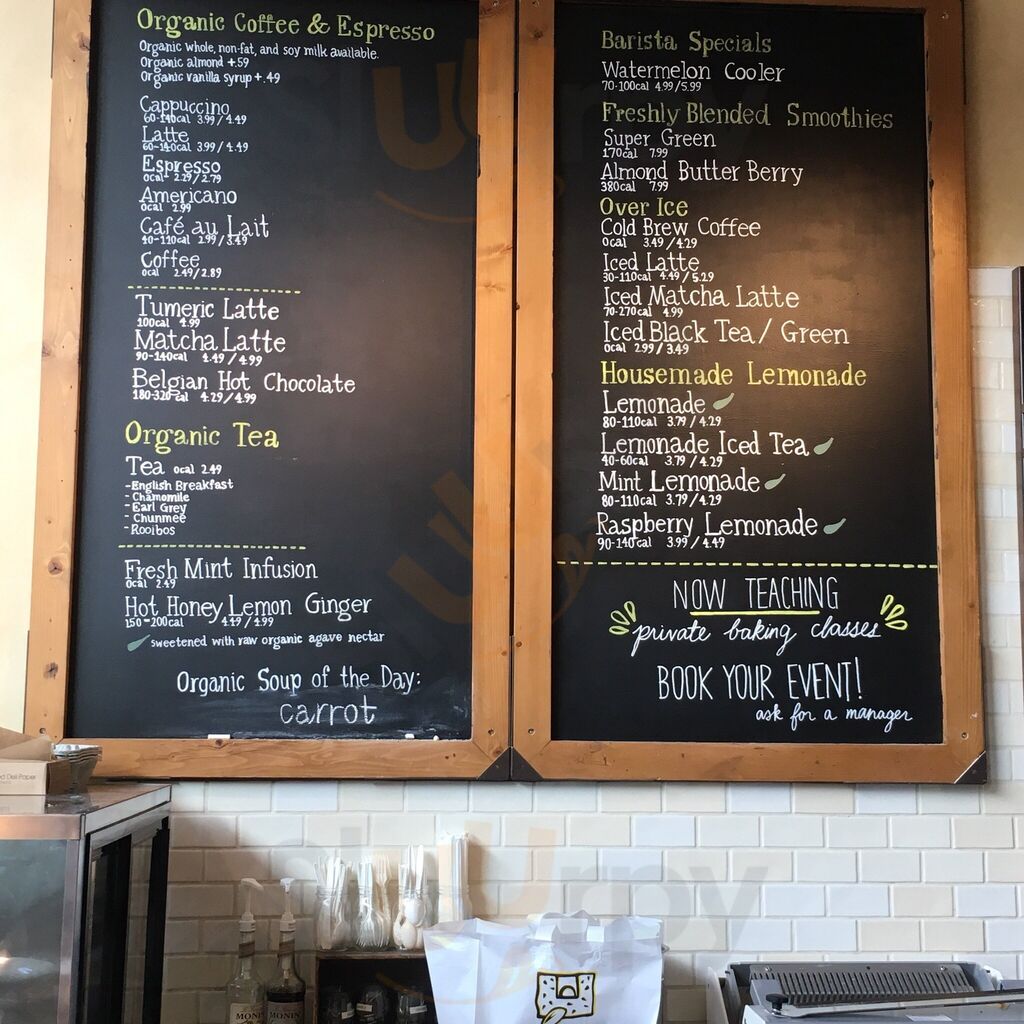 Organic Coffee & Espresso
Organic whole, non-fat, and soy milk available.
Organic almond +.59
Organic vanilla syrup +.49
Cappuccino
60-140cal 3.99/4.49
Latte
60-140cal 3.99/4.49
Espresso
0cal 2.29/2.79
Americano
0cal 2.99
Café au Lait
40-110cal 2.99/3.49
Coffee
0cal 2.49/2.89
Tumeric Latte
100cal 4.99
Matcha Latte
90-140cal 4.49/4.99
Belgian Hot Chocolate
180-320cal 4.29/4.99
Organic Tea
Tea 0cal 2.49
-English Breakfast
- Chamomile
- Earl Grey
- Chunmee
- Rooibos
Fresh Mint Infusion
0cal 2.49
Hot Honey Lemon Ginger
150-200cal 4.49/4.99
sweetened with raw organic agave nectar
Organic Soup of the Day:
carrot
Barista Specials
Watermelon Cooler
70-100cal 4.99/5.99
Freshly Blended Smoothies
Super Green
170cal 7.99
Almond Butter Berry
380cal 7.99
Over Ice
Cold Brew Coffee
0cal 3.49/4.29
Iced Latte
30-110cal 4.49/5.29
Iced Matcha Latte
70-270cal 4.99
Iced Black Tea/ Green
0cal 2.99/3.49
Housemade Lemonade
Lemonade
80-110cal 3.79/4.29
Lemonade Iced Tea
40-60cal 3.79/4.29
Mint Lemonade
80-110cal 3.79/4.29
Raspberry Lemonade
90-140cal 3.99/4.49
NOW TEACHING
private baking classes
BOOK YOUR EVENT!
ask for a manager
Deli Paper
MONIN
MONIN